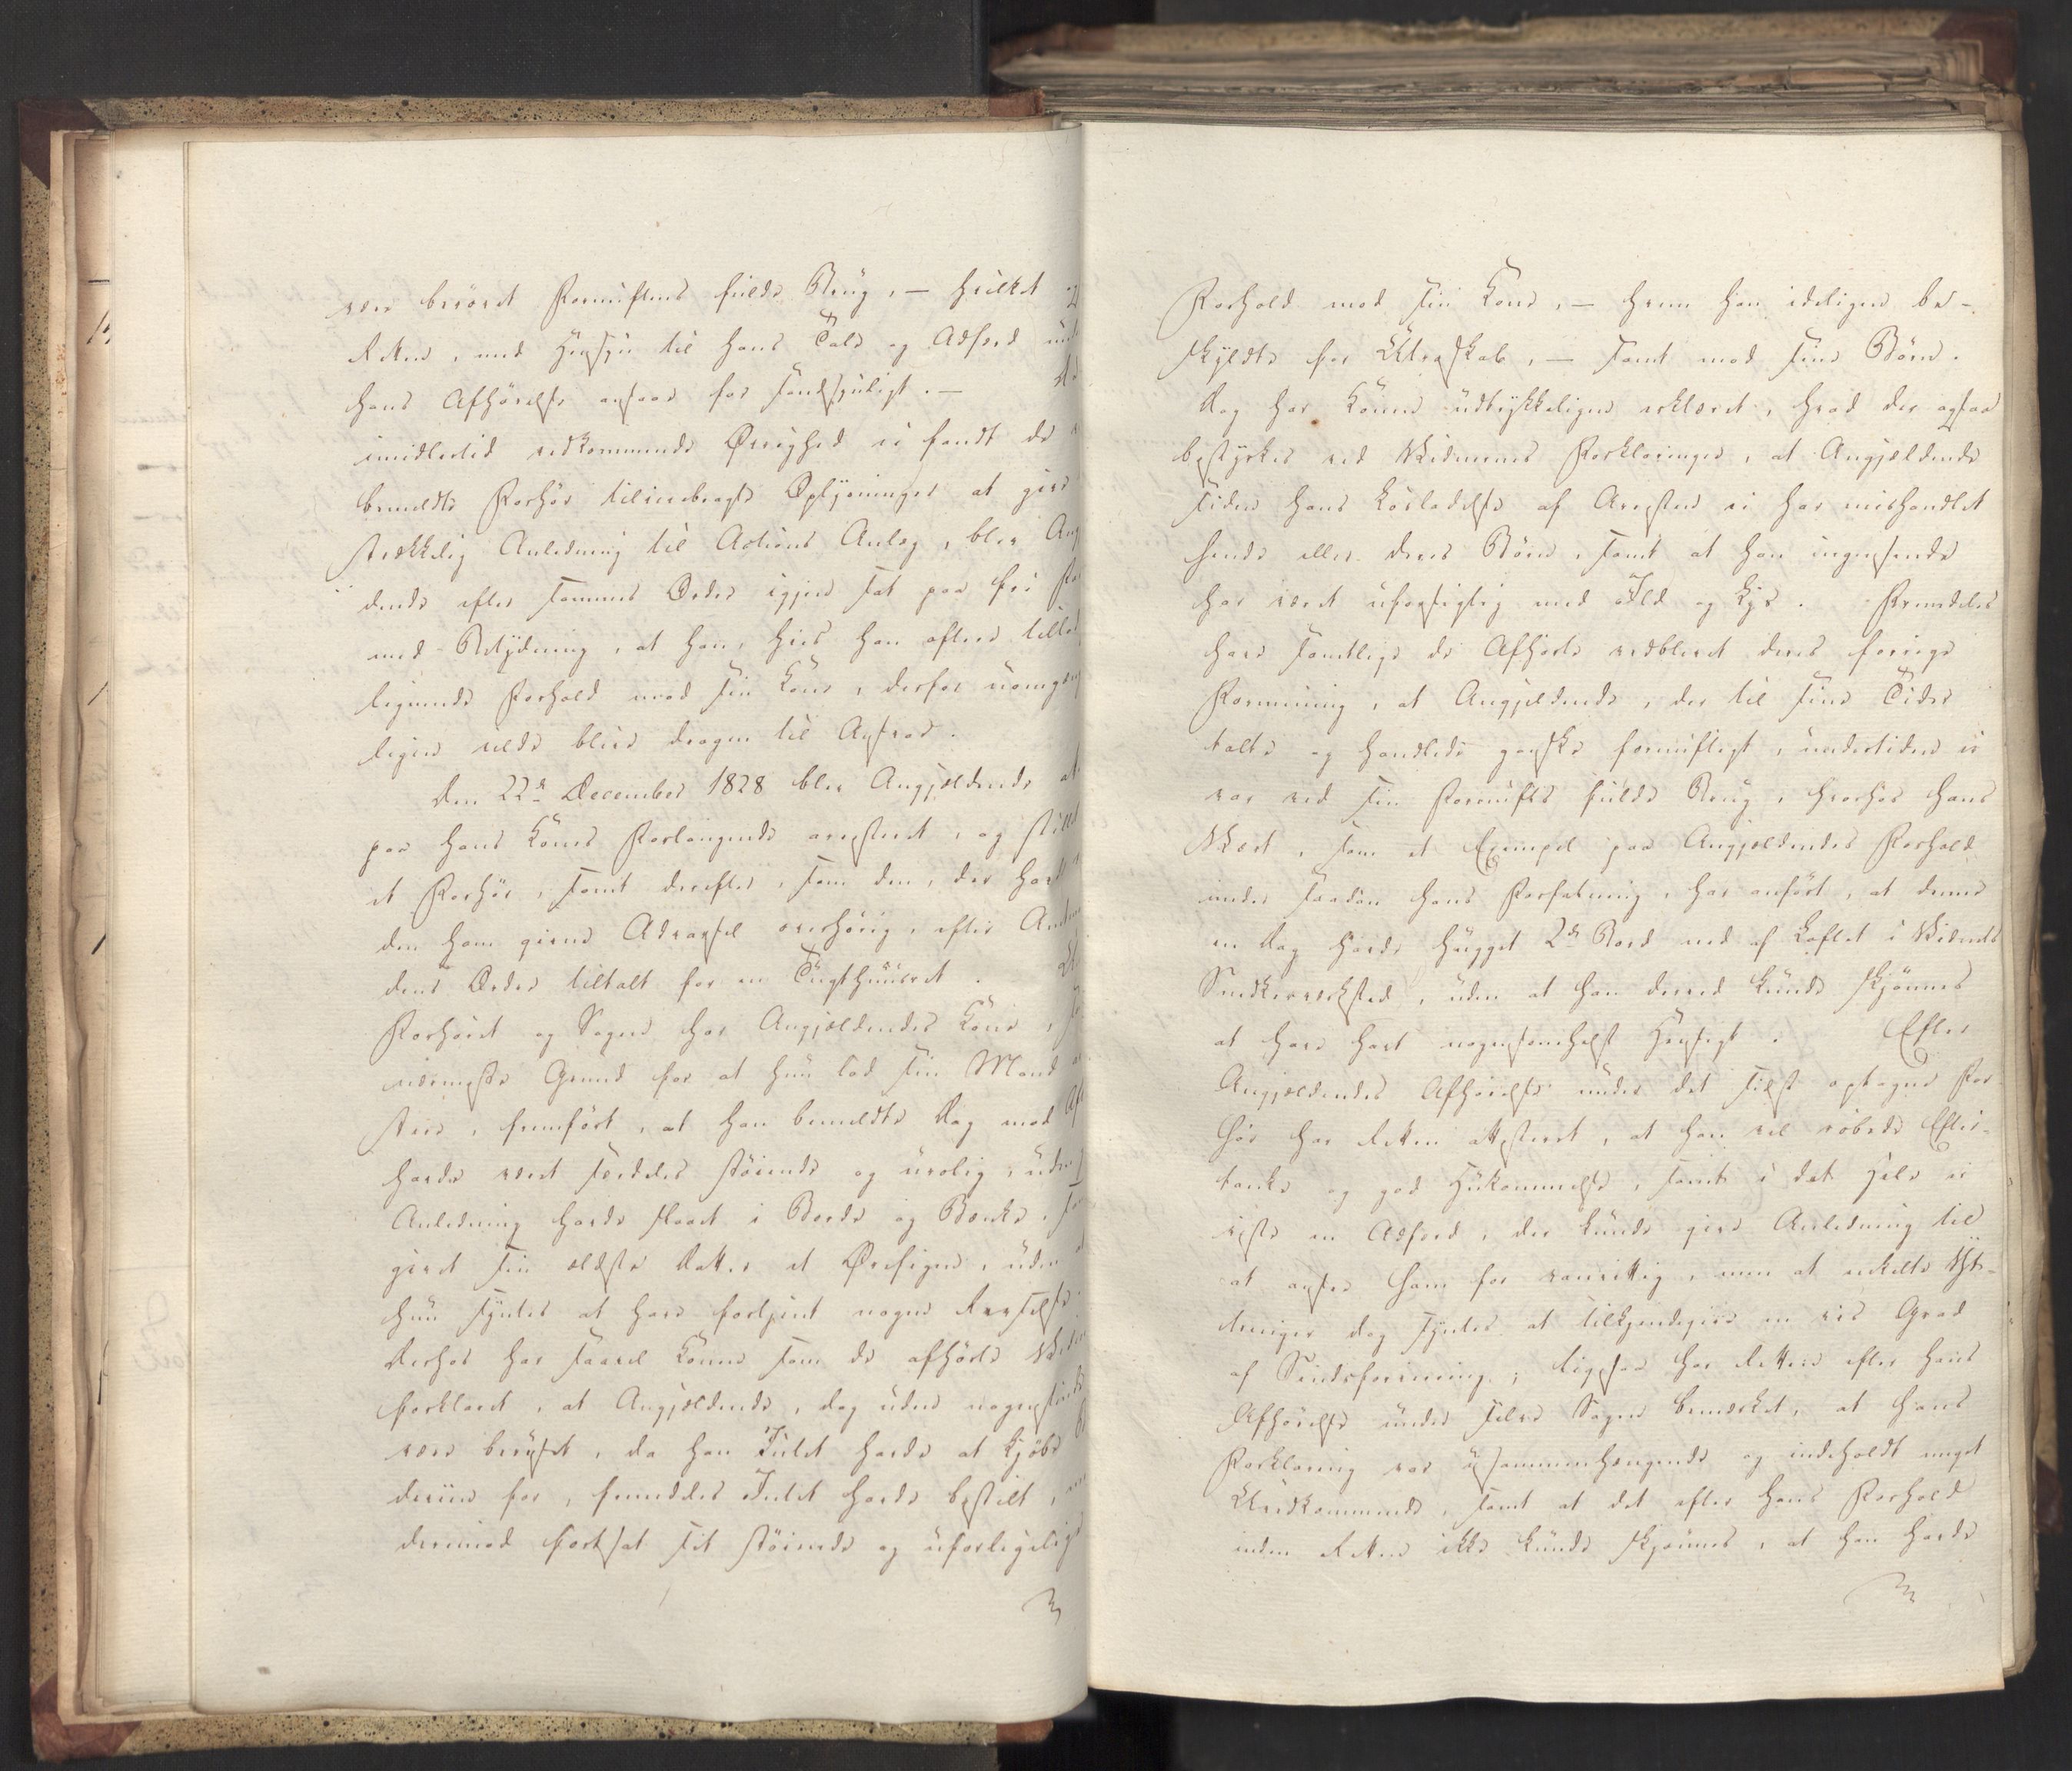 være berøvet Fornuftens fulde Brug, — hvilket og
Retten, med Hensyn til hans Tale og Adfærd unde
hans Afhørelse ansaae for sandsynligt. —
imidlertid vedkommende Øvrighed ei fandt de
bemeldte Forhør tilveiebragte Oplysninger at give
strækkelig Anledning til Actions Anlæg, blev Ang
dende efter sammes Ordre igjen sat paa fri Fo
med Betydning, at han, hvis han oftere
lignende Forhold mod sin Kone, derfor uomgæng
ligen vilde blive dragen til Ansvar.
Den 22de December 1828 blev Angjældende at
paa hans Kones Forlangende arresteret, og stillet
et Forhør, samt derefter, som den, der havde
den ham givne Advarsel overhørig, efter Amtm
dens Ordre tiltalt for en Tugthuusret.
Forhøret og Sagen har Angjældendes Kone,
nærmeste Grund for at hun lod sin Mand
stere, fremført, at han bemeldte Dag mod Aft
havde været særdeles støiende og urolig, uden
Anledning havde slaaet i Borde og Bænke,
givet sin ældste Datter et Ørefigen, uden at
hun syntes at have fortjent nogen Revselse.
Derhos har saavel Konen som de afhørte Vidn
forklaret, at Angjældende, dog uden nogensinde
være beruset, da han Intet havde at kjøbe
deriin for, fremdeles Intet havde bestilt, m
derimod fortsat sit støiende og uforligelige
Forhold mod sin Kone, — hvem han ideligen be-
skyldte for Utroskab, — samt mod sine Børn.
Dog har Konen udtrykkeligen erklæret, hvad der ogsaa
bestyrkes ved Vidnernes Forklaringer, at Angjældende
siden hans Løsladelse af Arresten ei har mishandlet
hende eller deres Børn, samt at han ingensinde
har været uforsigtig med Ild og Lys. Fremdeles
have samtlige de Afhørte vedblevet deres forrige
Formening, at Angjældende, der til sine Tider
talte og handlede ganske fornuftigt, undertiden ei
var ved sin Fornufts fulde Brug, hvorhos hans
Vært, som et Exempel paa Angjældendes Forhold
under saadan hans Forfatning, har anført, at denne
en Dag havde hugget 2de Bord ned af Loftet i Vidnets
Snedkerværksted, uden at han derved kunde skjønnes
at have havt nogensomhelst Hensigt. Efter
Angjældendes Afhørelse under det sidst optagne For
hør har Retten attesteret, at han vel røbede Efter-
tanke og god Hukommelse, samt i det Hele ei
viste en Adfærd, der kunde give Anledning til
at ansee ham for vanvittig, men at enkelte Yt-
tringer dog syntes at tilkjendegive en vis Grad
af Sindsforvirring; ligesaa har Retten efter hans
Afhørelse under selve Sagen bemærket, at hans
Forklaring var usammenhængende og indeholdt meget
Uvedkommende, samt at det efter hans Forhold
inden Retten ikke kunde skjønnes, at han havde